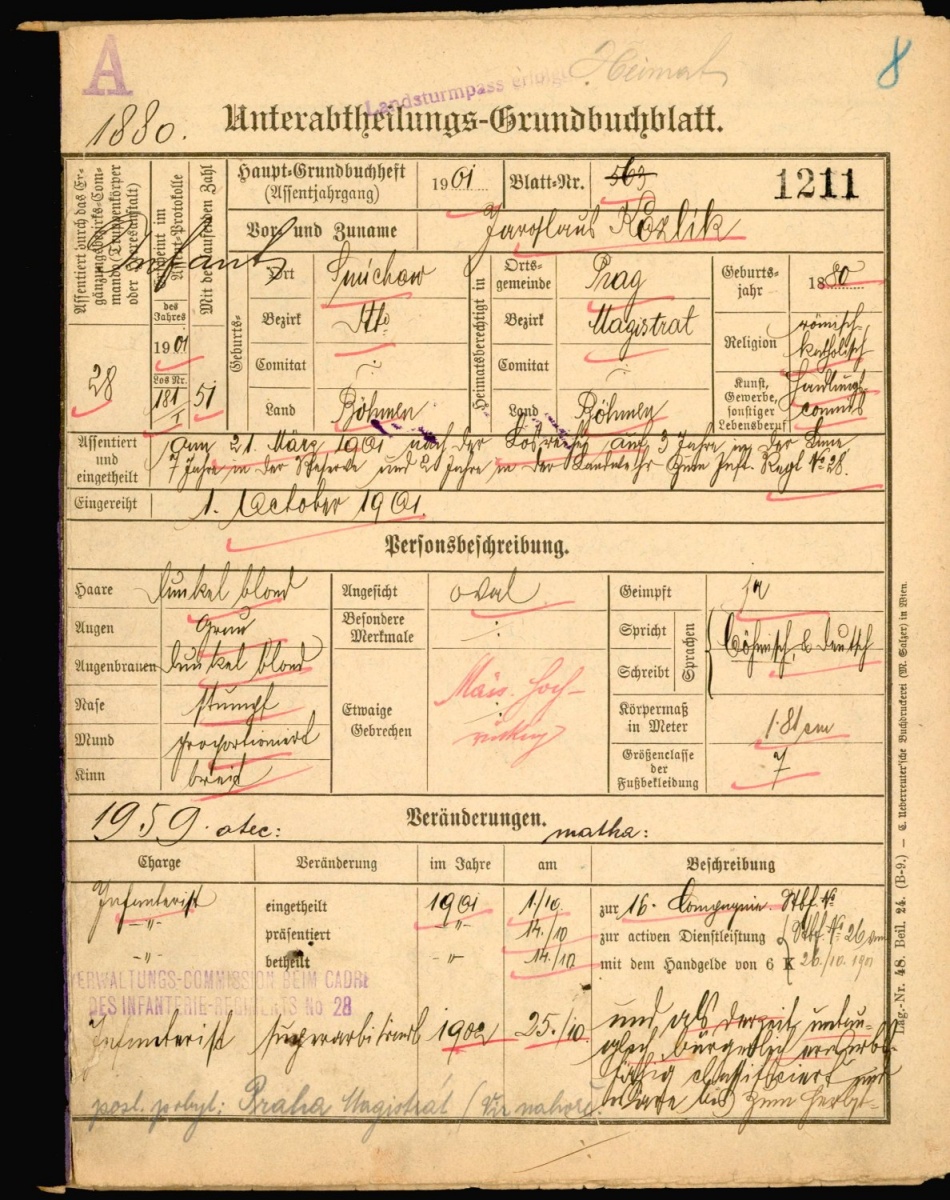 A
Landsturmpass erfolgt
Heimat
8
1880.
Unterabtheilungs-Grundbuchblatt.
Assentiert durch das Er-
gänzungsbezirks-Com-
mando (Truppenkörper
oder Heeresanstalt)
28
Assent-Protokolle
des
Jahres
1901
Los Nr.
181
I
Mit der laufenden Zahl
51
Haupt-Grundbuchheft
(Assentjahrgang)
1901
Blatt-Nr.
563
1211
Vor- und Zuname
Jaroslaus Kozlik
Geburts-
Ort
Smichow
Bezirk
dtto
Comitat
Land
Böhmen
Heimatsberechtigt in
Orts-
gemeinde
Prag
Bezirk
Magistrat
Comitat
Land
Böhmen
Geburts-
jahr
1880
Religion
römisch
katholisch
Kunst,
Gewerbe,
sonstiger
Lebensberuf
Handlungs
commis
Assentiert
und
eingetheilt
am 21. März 1901 nach der Losreihe auf 3 Jahre in der Linie
7 Jahre in der Reserve und 2 Jahre in der Landwehr zum Inft. Regt № 28.
Eingereiht
1. October 1901.
Personsbeschreibung.
Haare
dunkel blond
Augen
grau
Augenbrauen
dunkel blond
Nase
stumpf
Mund
proportionirt
Kinn
breit
Angesicht
oval
Besondere
Merkmale
Etwaige
Gebrechen
Geimpft
ja
Spricht
Schreibt
Sprachen
böhmisch & deutsch
Körpermaß
in Meter
1·81 cm
Größenclasse
der
Fußbekleidung
7
1959. otec:
Veränderungen.
matka:
Charge
Veränderung
im Jahre
am
Beschreibung
Infanterist
eingetheilt
1901
1./10.
zur 16. Compagnie. Stbf. №
-"-
präsentiert
-"-
14./10
zur activen Dienstleistung
Stbf. № 26
-"-
betheilt
-"-
14./10
mit dem Handgelde von 6 K
26./10. 1901
VERWALTUNGS-COMMISSION BEIM CADRE
DES INFANTERIE-REGIMENTS No 28
Infanterist
superarbitrirt
1902
25./10.
und als derzeit untau-
glich, bürgerlich erwerbs-
fähig classificiert und
zum Herbst-
posl. pobyt: Praha Magistrát / Viz nahoře
Lag.-Nr. 48. Beil. 24. (B-9.) — C. Ueberreuter'sche Buchdruckerei (M. Salzer) in Wien.